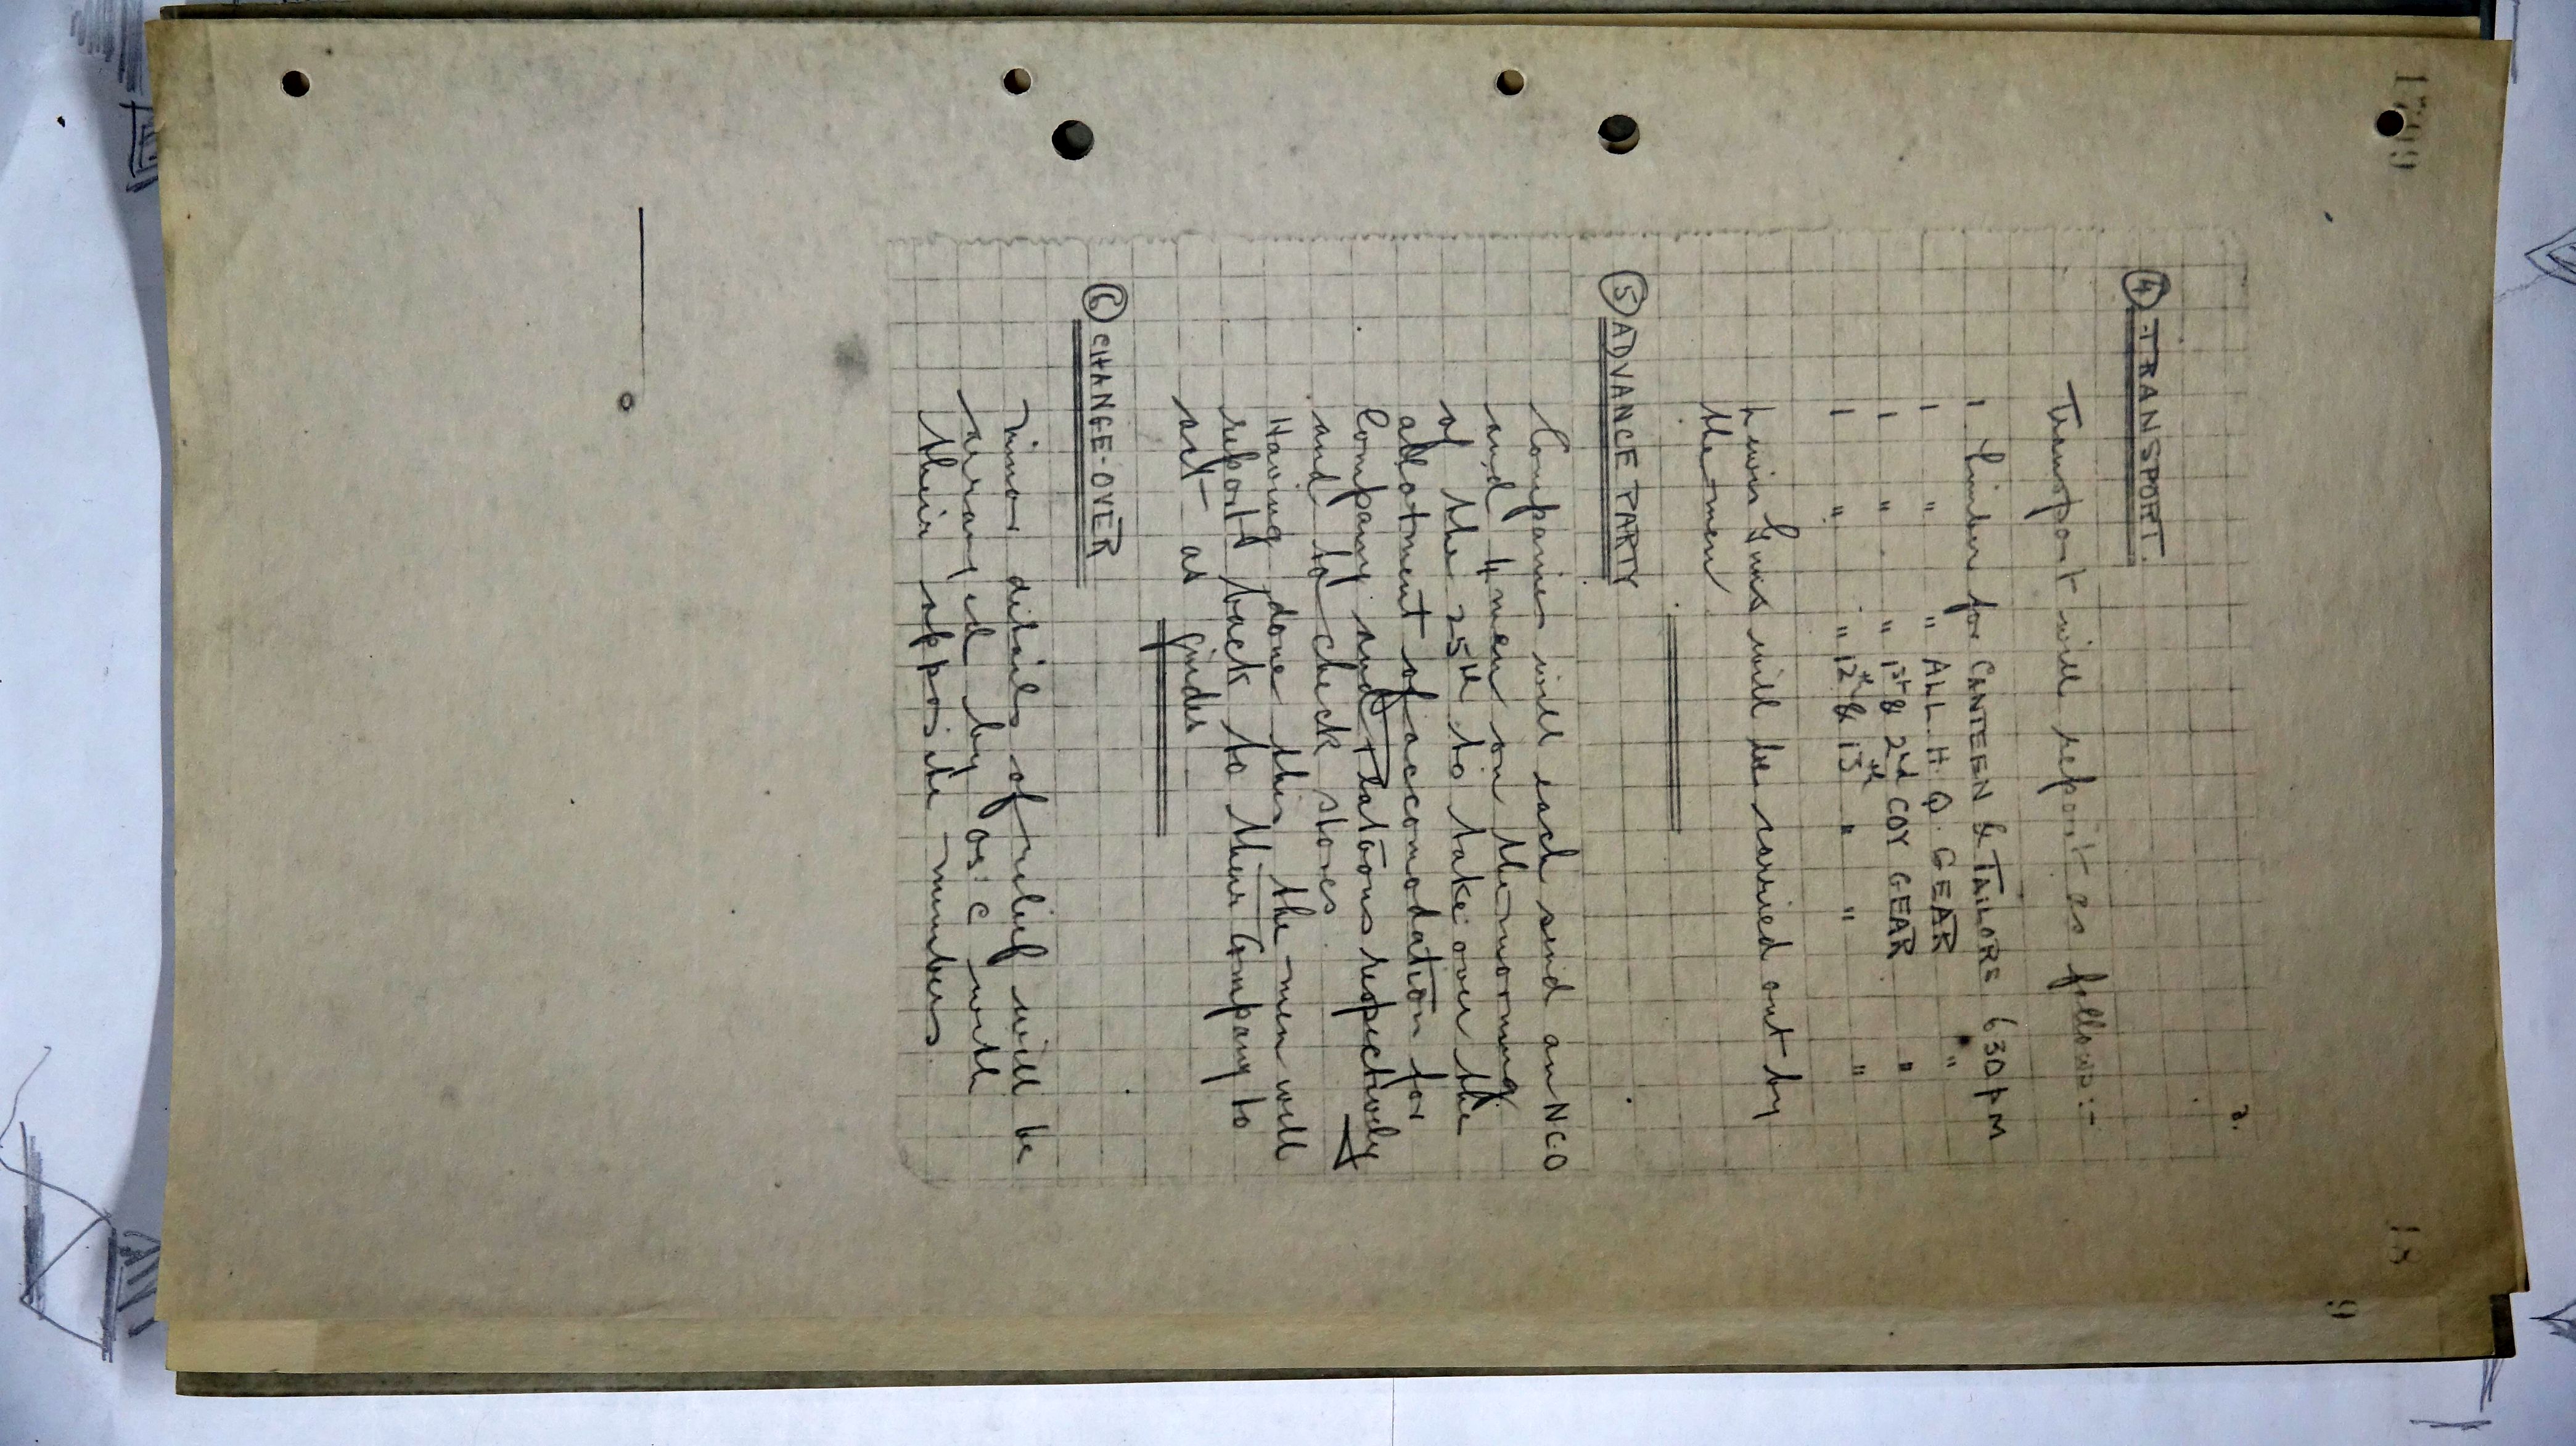 2.
④ TRANSPORT.
Transport will report as follows:-
1 Limber for CANTEEN & TAILORS 630 PM
1 " " ALL H.Q. GEAR "
1 " " 1st & 2nd COY GEAR "
1 " " 12th & 13th " " "
Lewis Guns will be carried out by
the men
⑤ ADVANCE PARTY
Companies will each send an NCO
and 4 men on the morning
of the 25th to take over the
allotment of accomodation for
Company and Platoons respectively
and to check stores
Having done this the men will
report back to their Company to
act as guides
⑥ CHANGE-OVER
Minor details of relief will be
arranged by Os. C with
their opposite numbers.
18
9